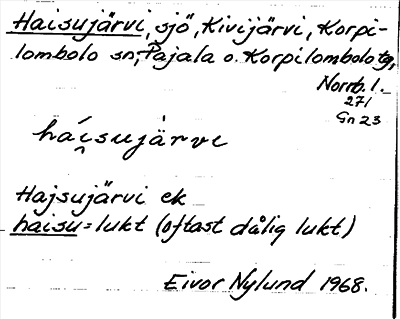 Haisujärvi, sjö, Kivijärvi, Korpi-
lombolo sn, Pajala o. Korpilombolo tg,
Norrb. l.
271
Gn 23
háisujàrvi
Hajsujärvi ek
haisu = lukt (oftast dålig lukt)
Eivor Nylund 1968.